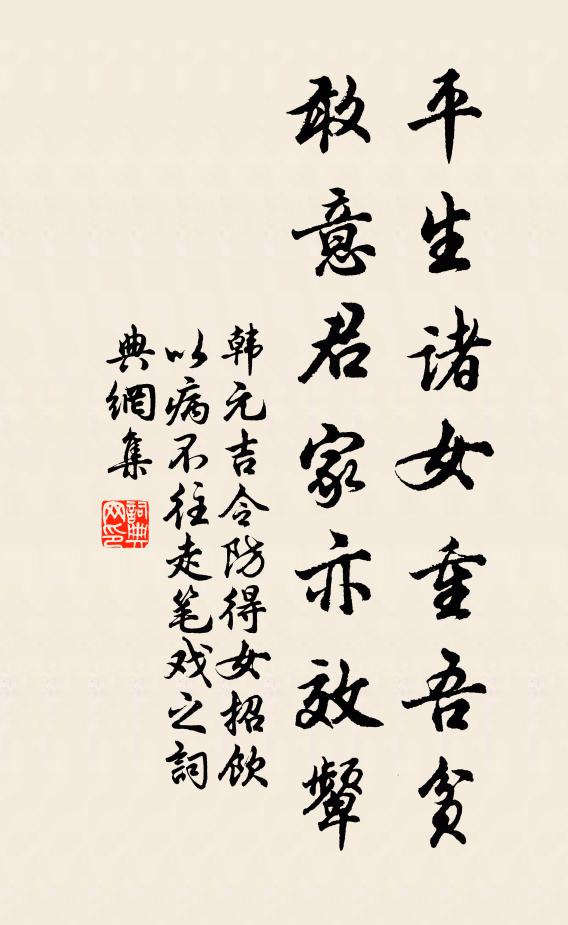 平生诸女重吾贫
敢意君家亦效颦
韩元吉令防得女招饮
以病不往走笔戏之詞
典網集
詞典网印